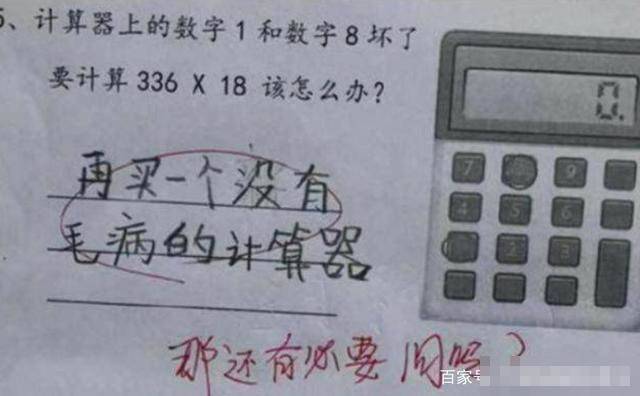 5、计算器上的数字1和数字8坏了
要计算336 X 18 该怎么办?
0.
7 9
4 5 6
2 3
再买一个没有
毛病的计算器
那还有必要问吗?
百家号